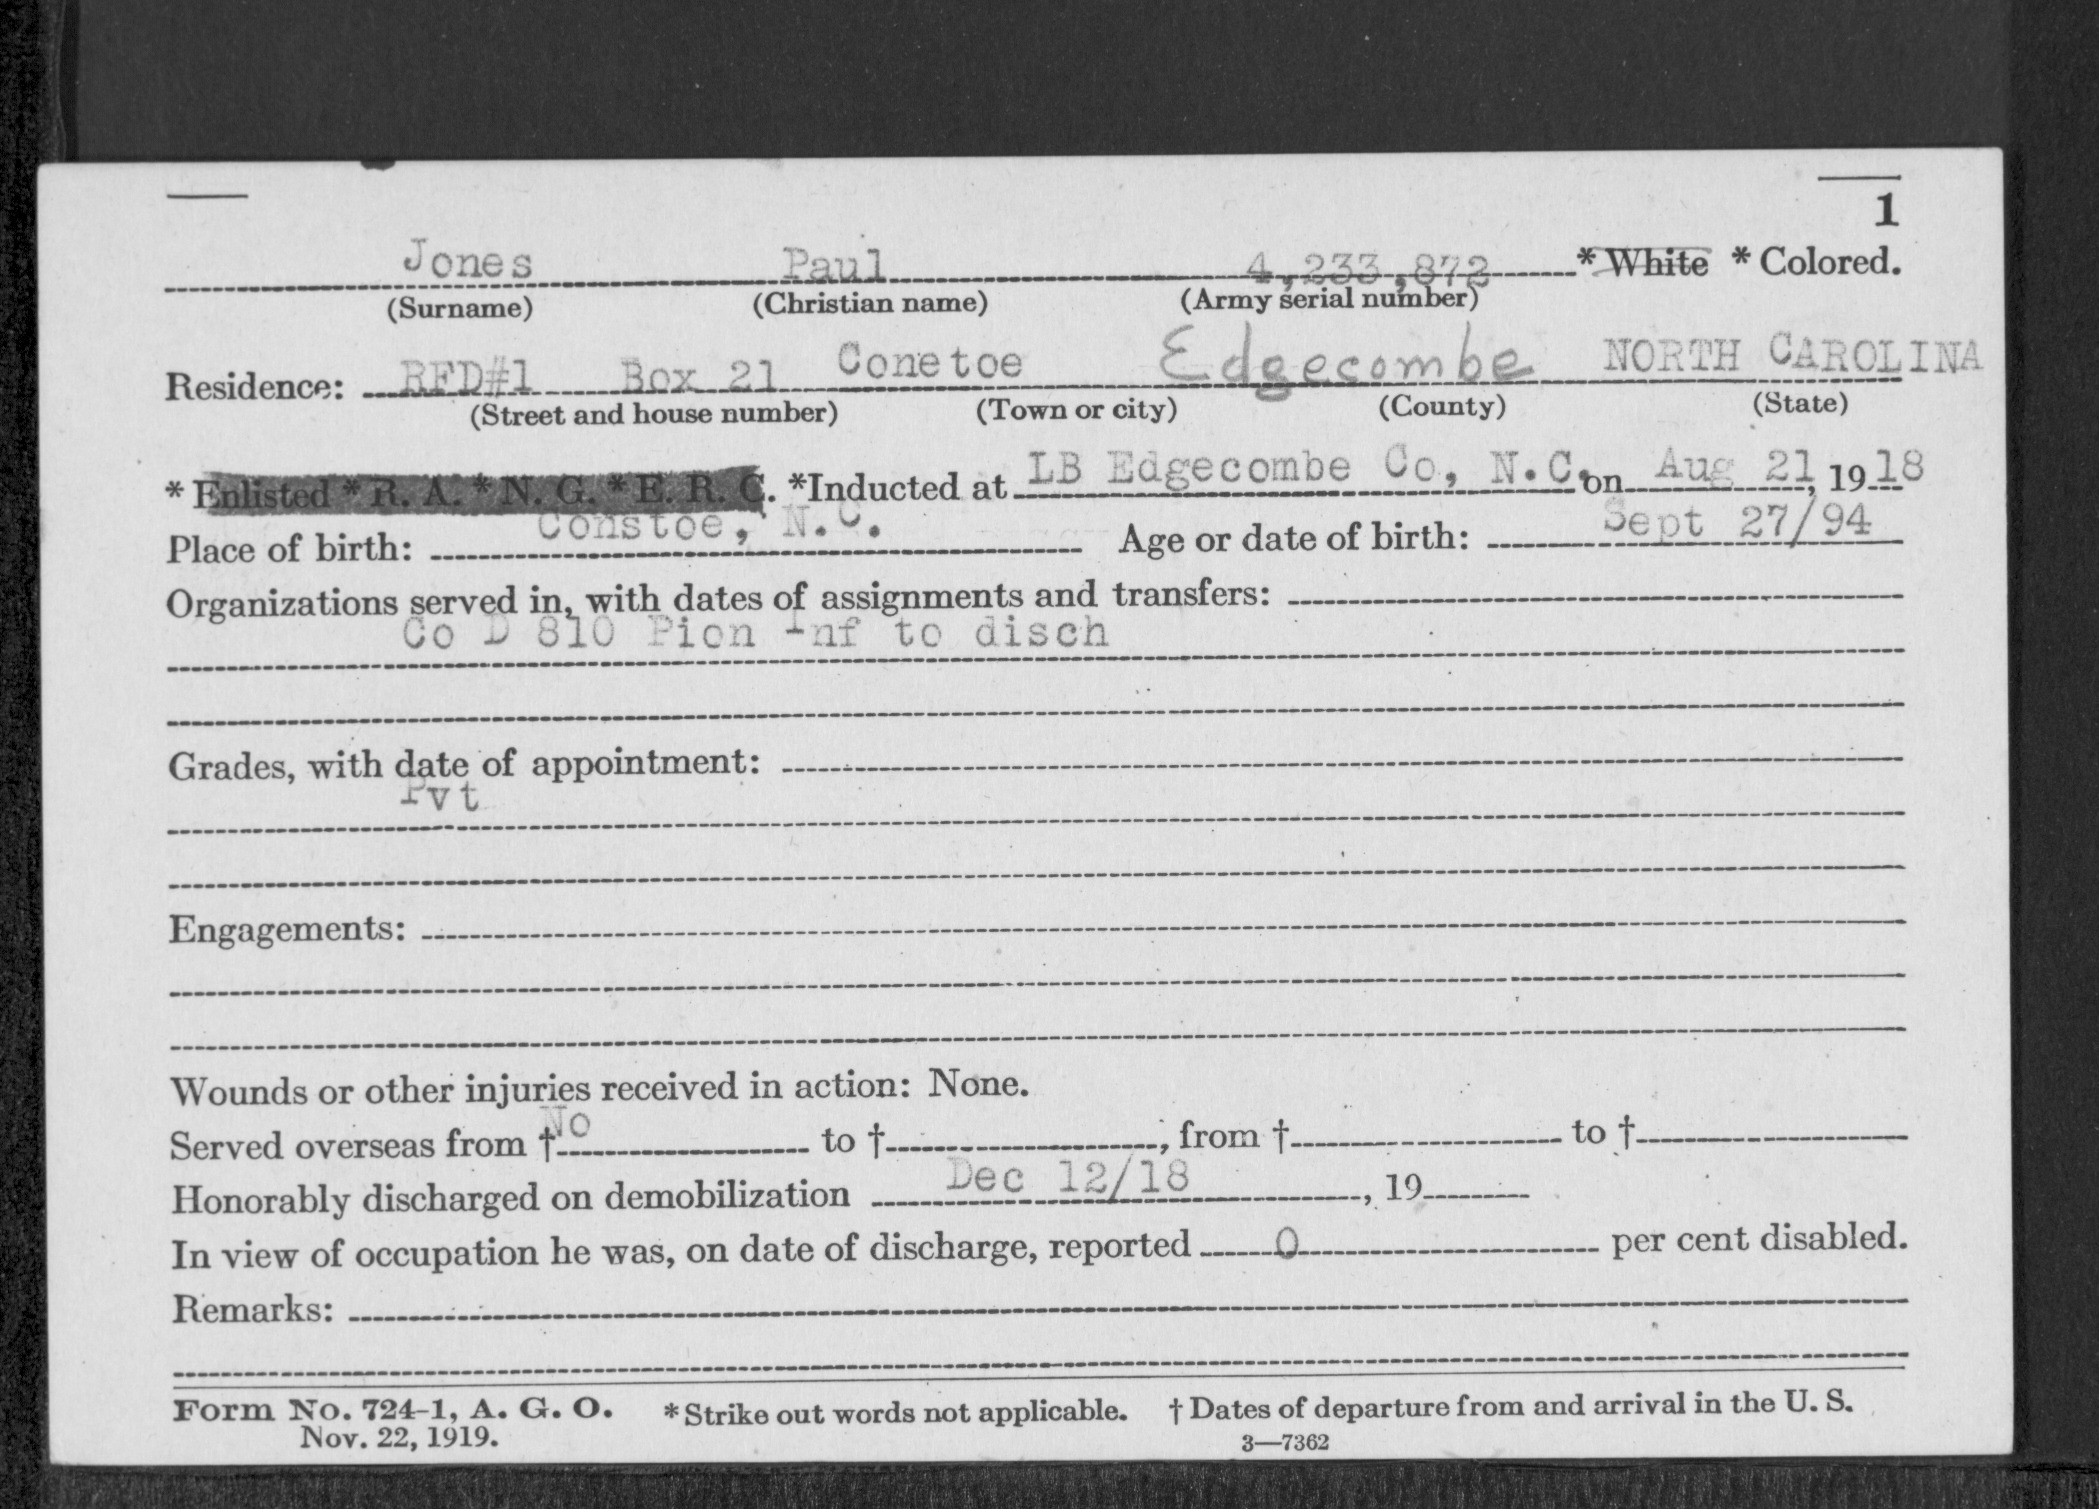 1
Jones Paul 4,233,872 * White * Colored.
(Surname) (Christian name) (Army serial number)
Residence: RFD#1 Box 21 Conetoe Edgecombe NORTH CAROLINA
(Street and house number) (Town or city) (County) (State)
* Enlisted * R. A. * N. G. * E. R. C. *Inducted at LB Edgecombe Co, N.C. on Aug 21, 1918
Place of birth: Constoe, N.C. Age or date of birth: Sept 27/94
Organizations served in, with dates of assignments and transfers:
Co D 810 Pion Inf to disch
Grades, with date of appointment:
Pvt
Engagements:
Wounds or other injuries received in action: None.
Served overseas from † No to †, from † to †
Honorably discharged on demobilization Dec 12/18, 19
In view of occupation he was, on date of discharge, reported 0 per cent disabled.
Remarks:
Form No. 724-1, A. G. O. * Strike out words not applicable. † Dates of departure from and arrival in the U. S.
Nov. 22, 1919. 3—7362